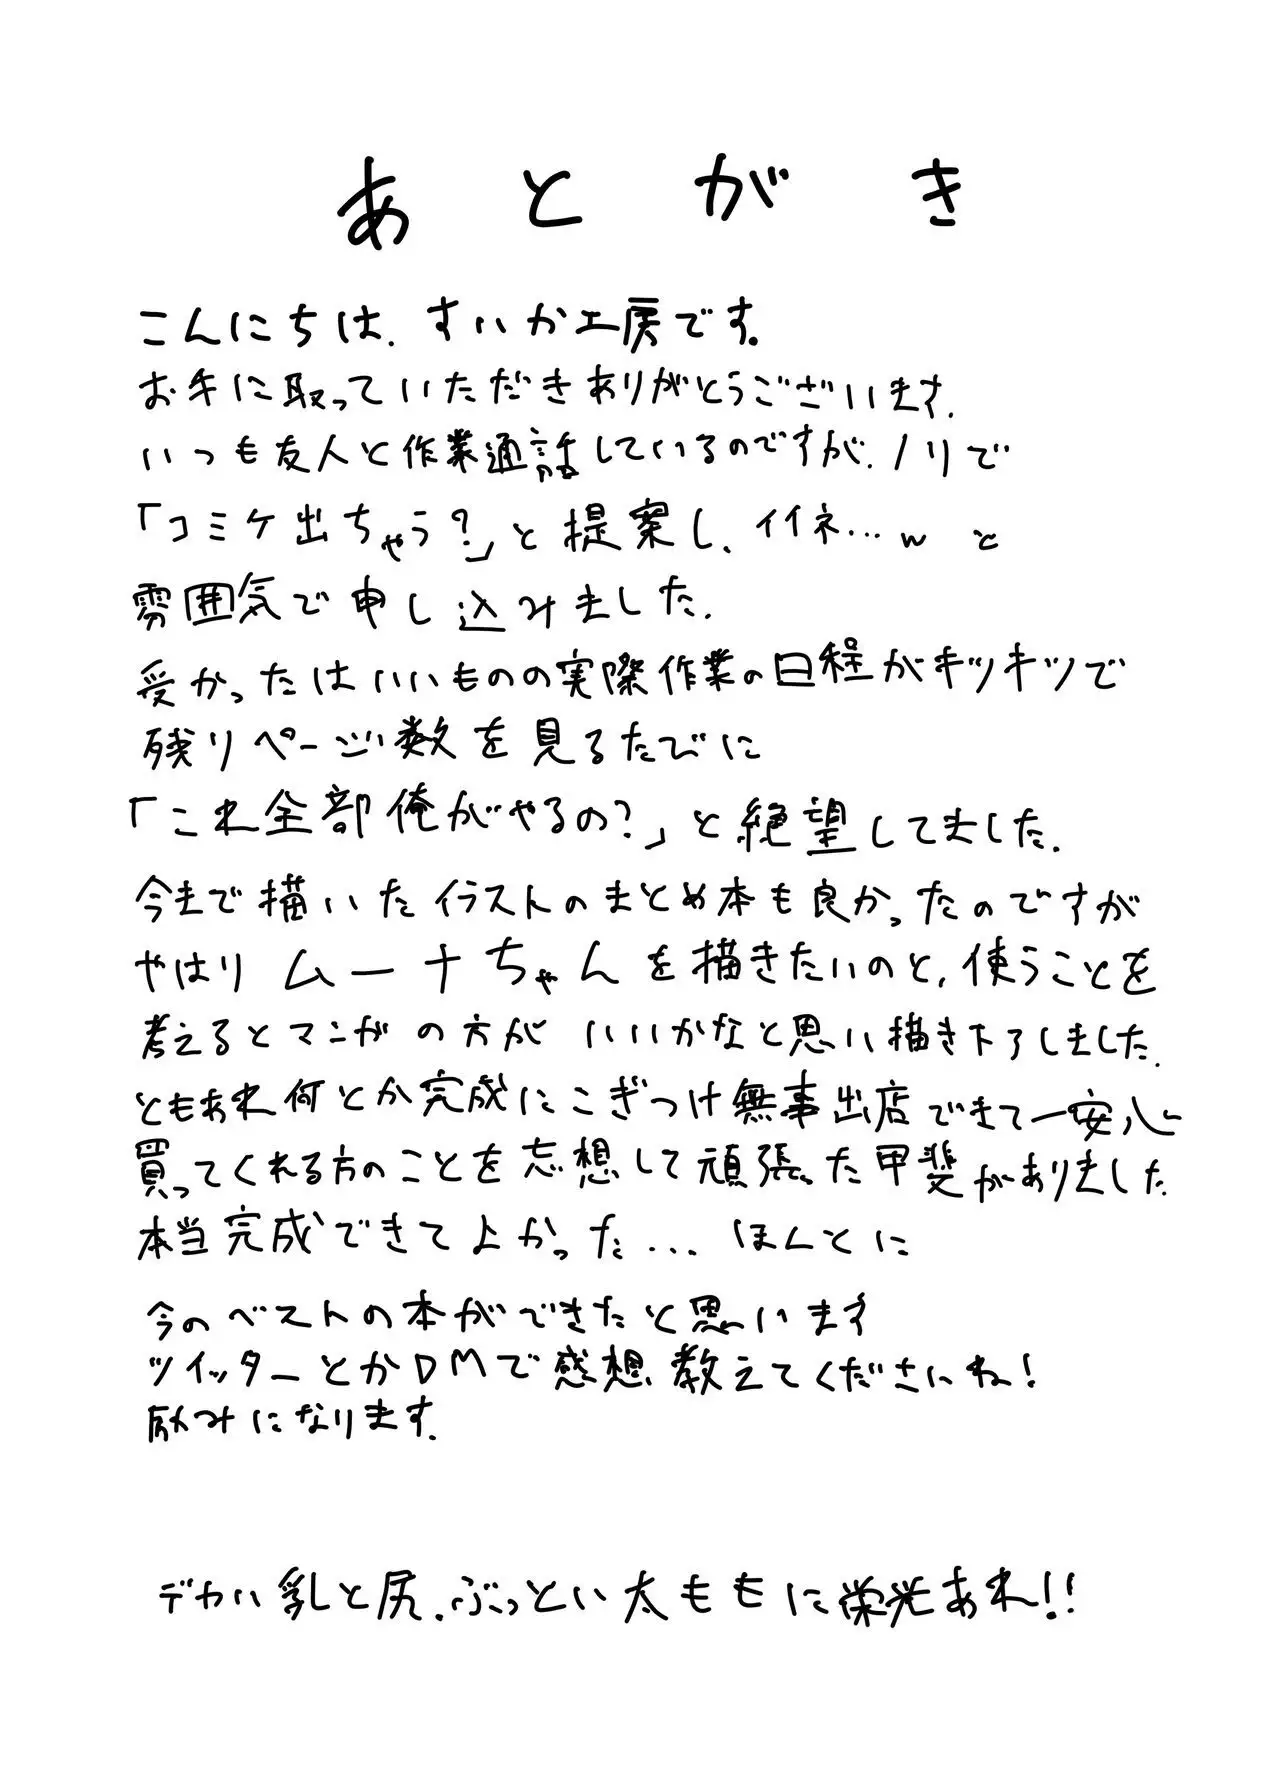 あとがき
こんにちは、すいか工房です。
お手に取っていただきありがとうございます。
いつも友人と作業通話しているのですが、ノリで
「コミケ出ちゃう？」と提案し、イイネ…w と
雰囲気で申し込みました。
受かったはいいものの実際作業の日程がキツキツで
残りページ数を見るたびに
「これ全部俺がやるの？」と絶望してました。
今まで描いたイラストのまとめ本も良かったのですが
やはりムーナちゃんを描きたいのと、使うことを
考えるとマンガの方がいいかなと思い描き下ろしました。
ともあれ何とか完成にこぎつけ無事出店できて一安心
買ってくれる方のことを忘想して頑張った甲斐がありました
本当完成できてよかった... ほんとに
今のベストの本ができたと思います
ツイッターとかDMで感想教えてくださいね！
励みになります。
デカい乳と尻、ぶっとい太ももに栄光あれ!!